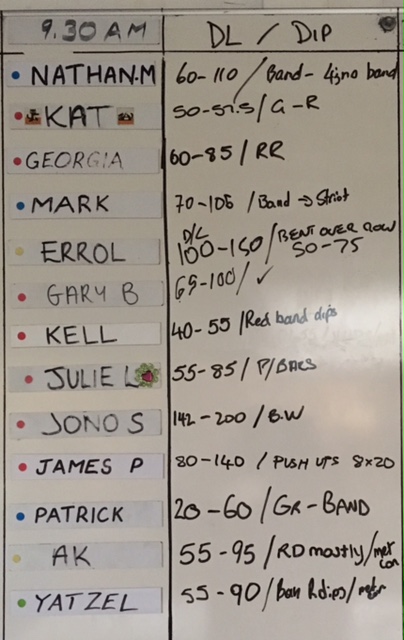 9.30 AM DL / DIP
NATHAN.M 60-110 / Band - no band
KAT 50-57.5 / G-R
GEORGIA 60-85 / RR
MARK 70-105 / Band → Strict
ERROL D/L 100-150 / BENT OVER ROW 50-75
GARY B 65-100 / ✓
KELL 40-55 / Red band dips
JULIE L 55-85 / P/BARS
JONO S 142-200 / B.W
JAMES P 80-140 / PUSH UPS 8x20
PATRICK 20-60 / GR-BAND
AK 55-95 / RD mostly / met con
YATZEL 55-90 / dips /